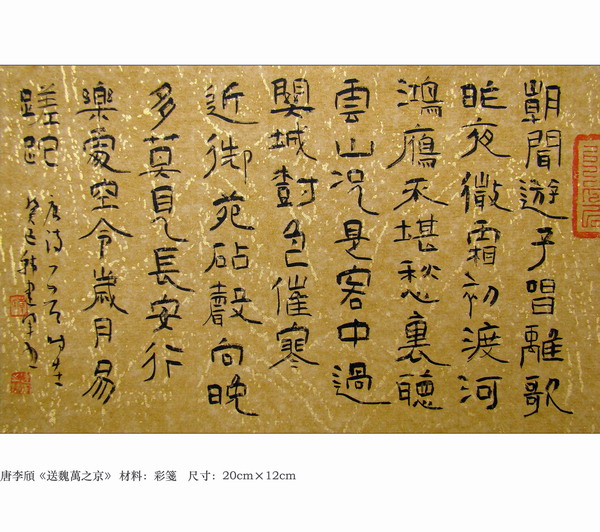 朝聞遊子唱離歌
昨夜微霜初渡河
鴻鴈不堪愁裏聽
雲山況是客中過
關城樹色催寒
近御苑砧聲向晚
多莫見長安行
樂處空令歲月易
蹉跎
唐詩一首
癸巳秋
唐李頎《送魏萬之京》 材料：彩箋 尺寸：20cm×12cm